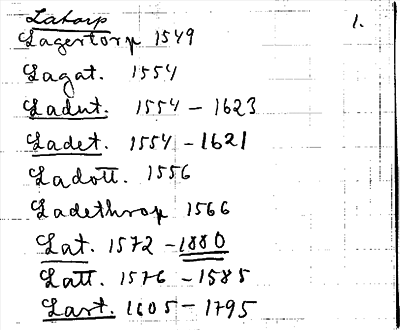 Latorp 1.
Lagertorp 1549
Lagat. 1554
Ladut. 1554 - 1623
Ladet. 1554 - 1621
Ladott. 1556
Ladethrop 1566
Lat. 1572 - 1880
Latt. 1576 - 1585
Last. 1605 - 1795